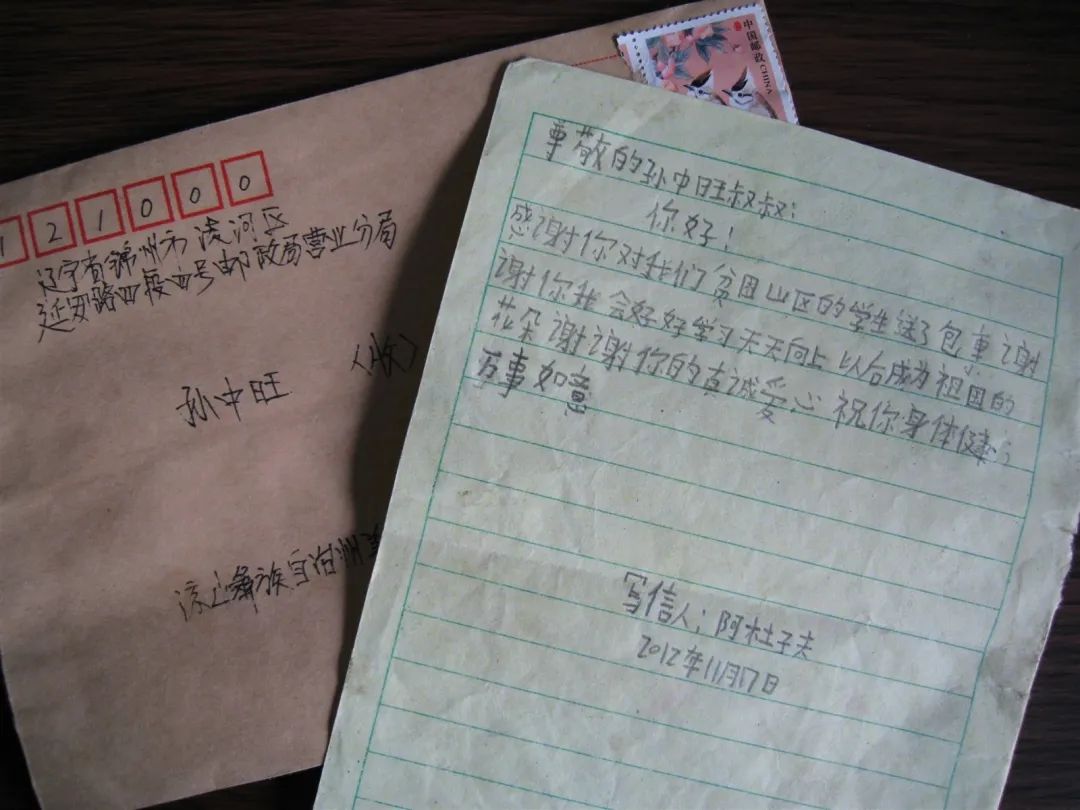 中国邮政
CHINA
121000
辽宁省锦州市凌河区
延安路四段四号邮政局营业分局
孙中旺
(收)
凉山彝族自治州美
尊敬的孙中旺叔叔:
你好!
感谢你对我们贫困山区的学生送了包裹谢
谢你我会好好学习天天向上以后成为祖国的
花朵谢谢你的真诚爱心 祝你身体健;
万事如意
写信人:阿杜子夫
2012年11月17日